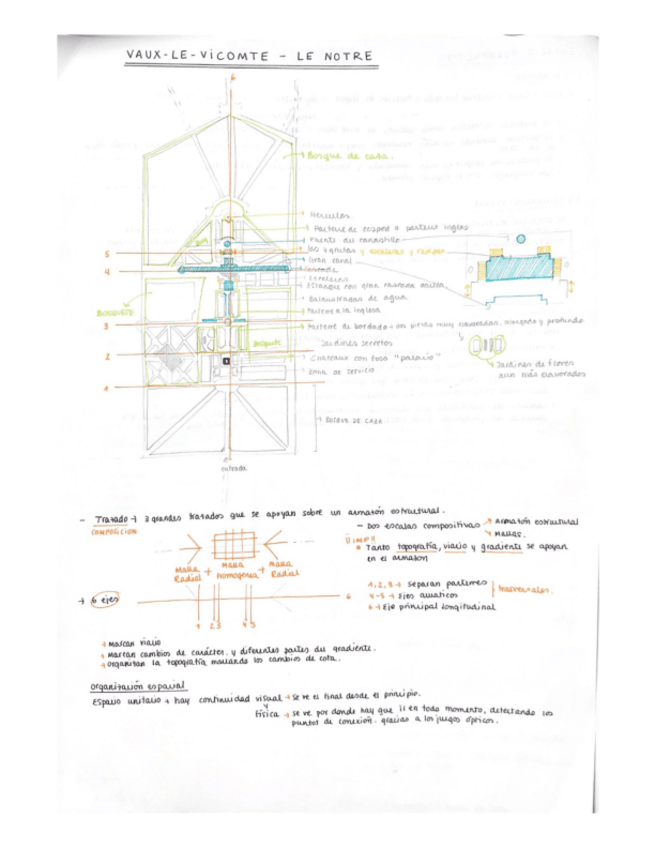 VAUX-LE-VICOMTE - LE NOTRE
6
Bosque de caza.
Hércules
Parterre de césped o parterre inglés
Fuente del canastillo
Las grutas y escaleras y rampas
Gran canal
Cascada
Estanque con gran cascada oculta
Balaustradas de agua
Parterre a la inglesa
Parterre de bordado
muy elaboradas, alargado y profundo
Jardines secretos
Chateaux con foso "palacio"
Zona de servicio
Jardines de flores
aun más elaborados
BOSQUETE
Bosquete
5
4
3
2
1
BOSQUE DE CAZA
entrada
- Trazado → 3 grandes trazados que se apoyan sobre un armazón estructural.
COMPOSICIÓN
Malla Radial + Malla homogenea + Malla Radial
- Dos escalas compositivas → Armazón estructural
→ Mallas.
!! IMP !!
Tanto topografía, viario y gradiente se apoyan
en el armazón
→ 6 ejes
6
1 2 3 4 5
1, 2, 3 → separan parterres
4-5 → Ejes acuáticos
transversales.
6 → Eje principal longitudinal
→ Marcan viario
→ Marcan cambios de carácter, y diferentes partes del gradiente.
→ Organizan la topografía marcando los cambios de cota.
Organización espacial
Espacio unitario → hay continuidad visual → se ve el final desde el principio.
y
física → se ve por donde hay que ir en todo momento, detectando los
puntos de conexión. gracias a los juegos ópticos.